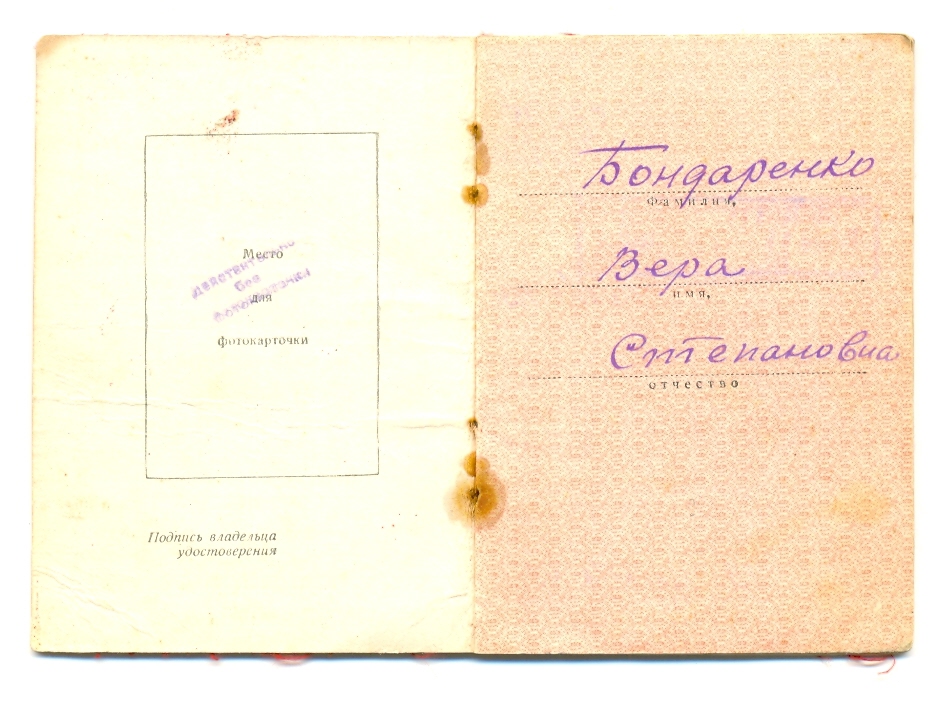 Место
для
фотокарточки
Действительно
без
фотокарточки
Подпись владельца
удостоверения
Бондаренко
Фамилия,
Вера
имя,
Степановна
отчество